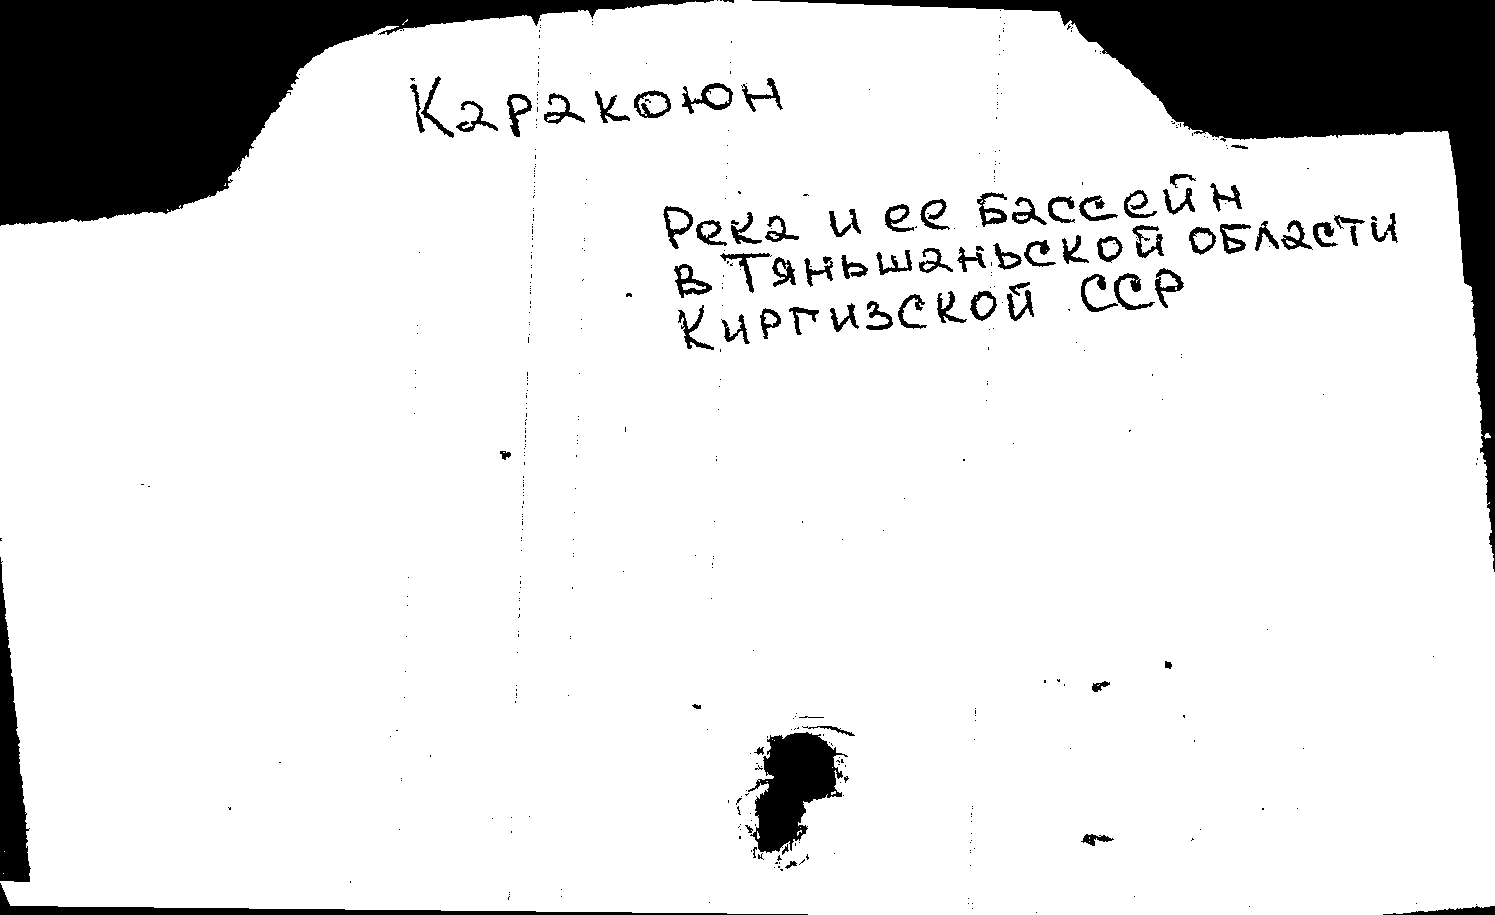 Каракоюн
Река и ее бассейн
в Тяньшаньской области
Киргизской ССР